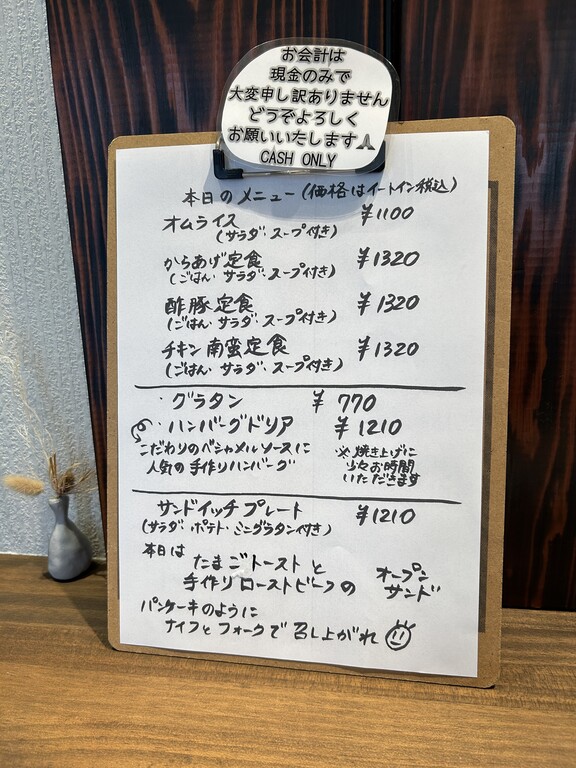 お会計は
現金のみで
大変申し訳ありません
どうぞよろしく
お願いいたします🙏
CASH ONLY
本日のメニュー(価格はイートイン税込)
オムライス ¥1100
(サラダ・スープ付き)
からあげ定食 ¥1320
(ごはん・サラダ・スープ付き)
酢豚定食 ¥1320
(ごはん・サラダ・スープ付き)
チキン南蛮定食 ¥1320
(ごはん・サラダ・スープ付き)
・グラタン ¥770
・ハンバーグドリア ¥1210
こだわりのベシャメルソースに
人気の手作りハンバーグ
※焼き上げに
少々お時間
いただきます
サンドイッチプレート ¥1210
(サラダ・ポテト・ミニグラタン付き)
本日は
たまごトーストと
手作りローストビーフの
オープン
サンド
パンケーキのように
ナイフとフォークで召し上がれ